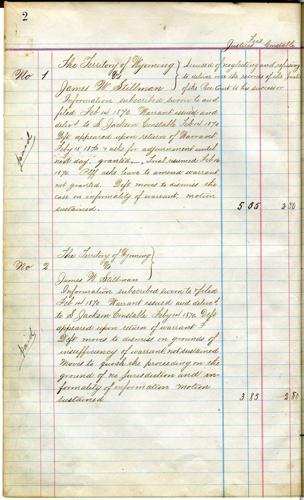 2
Fees
Justice Constable
No 1
The Territory of Wyoming
vs
James W. Stillman
Accused of neglecting and refusing
to deliver over the records of the
of the to his successor
Information subscribed sworn to and
filed Feb 14 1870. Warrant issued and
deliv'd to S. Jackson Constable Feb 14 1870
Deft appeared upon return of Warrant
Feby 15 1870 & asks for adjournment until
next day. granted. Trial resumed Feb 16
1870. asks leave to amend warrant
not granted. Deft moves to dismiss the
case on informality of warrant, motion
sustained. 5 05 2 50
paid
No 2
The Territory of Wyoming
vs
James W. Stillman
Information subscribed sworn to & filed
Feb 14 1870. Warrant issued and deliv'd
to S. Jackson Constable Feby 14 1870. Deft
appeared upon return of warrant
Deft moves to dismiss on grounds of
insufficiency of warrant not sustained
Moves to quash the preceeding on the
ground of no Jurisdiction and in-
formality of information motion
sustained 3 85 2 50
paid